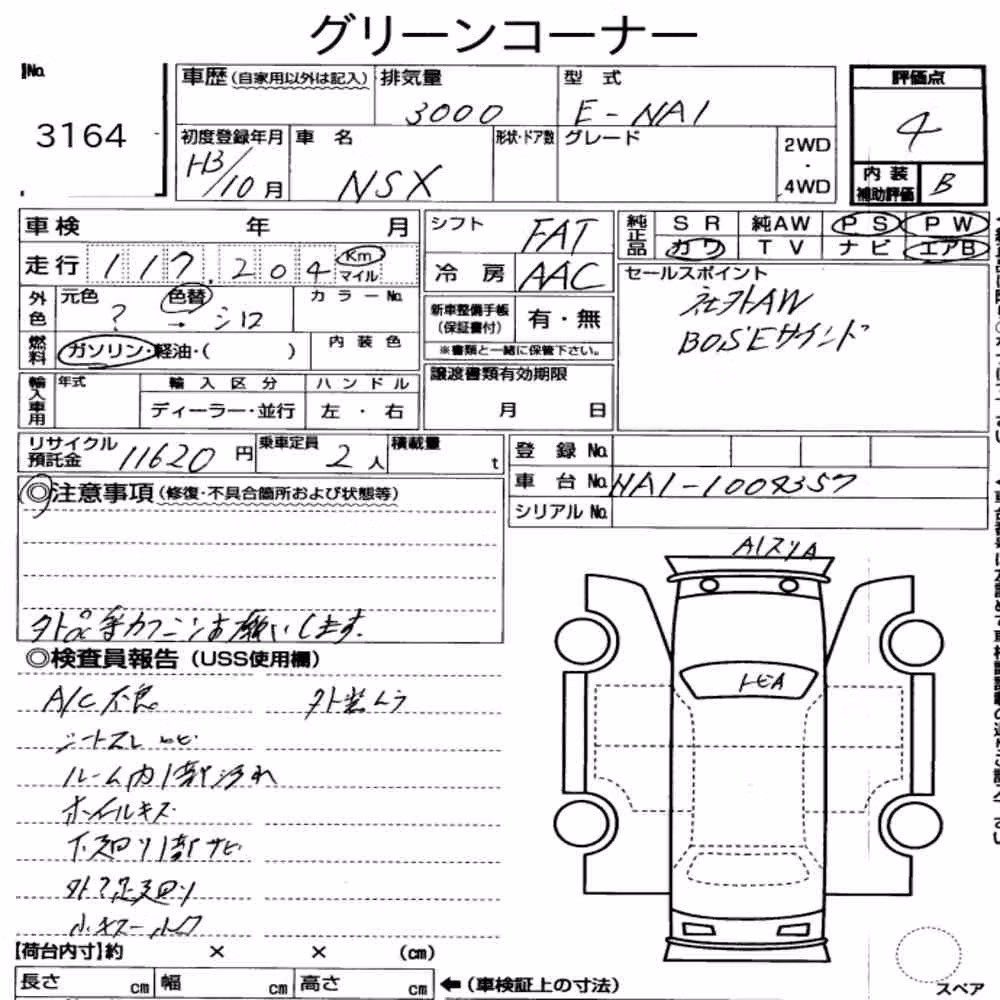 グリーンコーナー
No. 3164
車歴(自家用以外は記入) 排気量 3000 型式 E-NA1
初度登録年月 H3/10月 車名 NSX 形状・ドア数 グレード 2WD・4WD
評価点 4
内装補助評価 B
車検 年 月
走行 117,204 Km マイル
外色 元色 ? 色替 → シロ カラーNo.
燃料 ガソリン・軽油・( ) 内装色
輸入車用 年式 輸入区分 ディーラー・並行 ハンドル 左・右
シフト FAT
冷房 AAC
新車整備手帳(保証書付) 有・無
※書類と一緒に保管下さい。
譲渡書類有効期限 月 日
純正品 SR 純AW PS PW
カワ TV ナビ エアB
セールスポイント
社外AW
BOSEサウンド
リサイクル預託金 11620円 乗車定員 2人 積載量 t
登録No.
車台No. NA1-1004357
シリアルNo.
◎注意事項(修復・不具合箇所および状態等)
お願いします
◎検査員報告(USS使用欄)
A/C不良 外装ムラ
シートスレ
ルーム内1部汚れ
ホイールキズ
下廻り1部サビ
小キズ
A1 スリA
トビA
【荷台内寸】約 × × (cm)
長さ cm 幅 cm 高さ cm ←(車検証上の寸法)
スペア